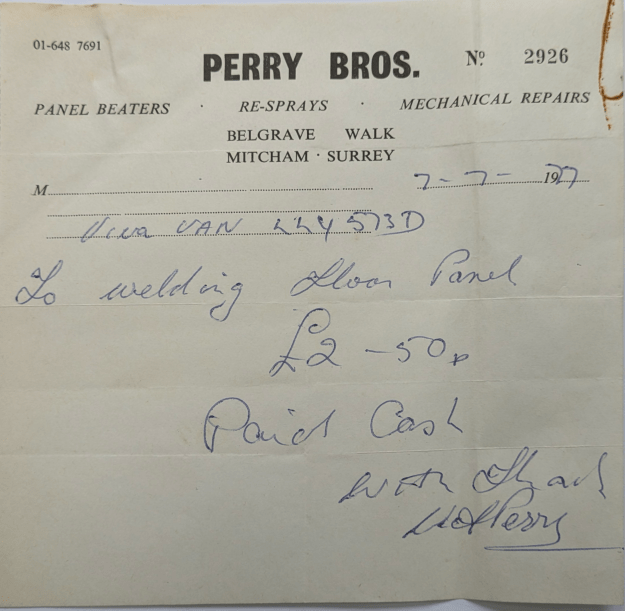 01-648 7691
PERRY BROS.
Nº 2926
PANEL BEATERS · RE-SPRAYS · MECHANICAL REPAIRS
BELGRAVE WALK
MITCHAM · SURREY
M
7-7-1977
Viva VAN LLY 573D
To welding Floor Panel
£2-50p
Paid Cash
with Thanks
Perry